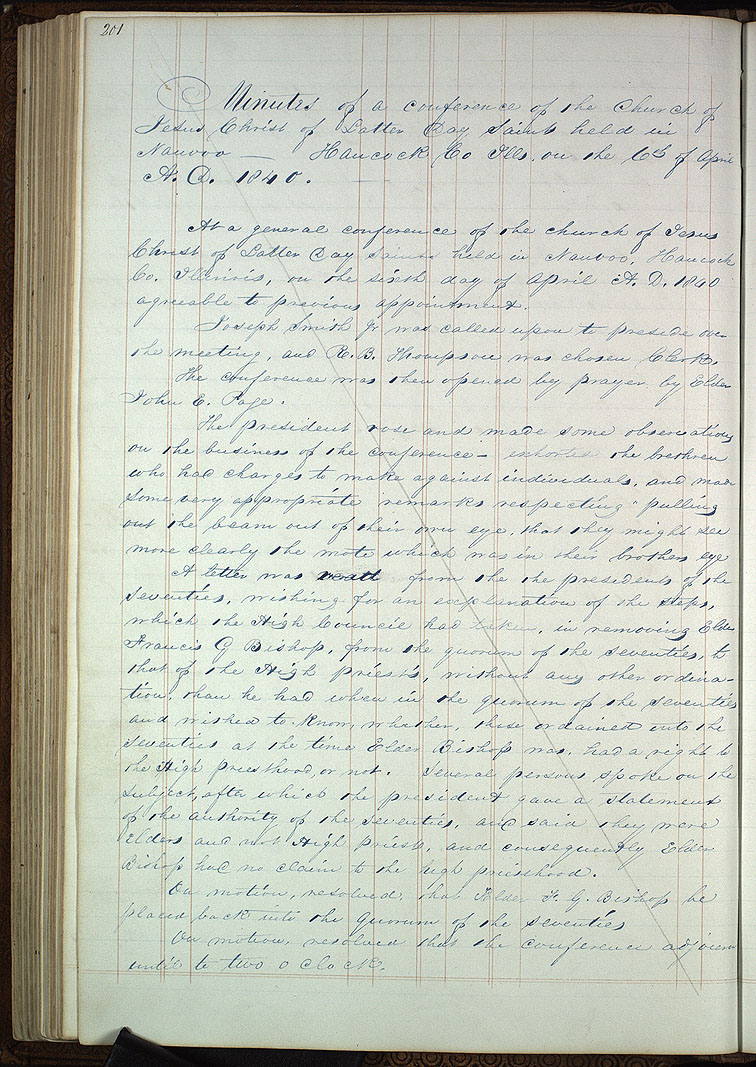 201
Minutes of a conference of the Church of
Jesus Christ of Latter Day Saints held in
Nauvoo — Hancock Co Ills. on the 6th of April
A. D. 1840.
At a general conference of the church of Jesus
Christ of Latter Day Saints held in Nauvoo, Hancock
Co. Illinois, on the sixth day of April A. D. 1840
agreeable to previous appointment.
Joseph Smith Jr was called upon to preside over
the meeting, and R. B. Thompson was chosen Clerk,
The conference was then opened by prayer by Elder
John E. Page.
The president rose and made some observations
on the business of the conference – exhorted the brethren
who had charges to make against individuals, and made
some very appropriate remarks respecting "pulling
out the beam out of their own eye, that they might see
more clearly the mote which was in their brothers eye
A letter was from the the presidents of the
seventies, wishing for an explanation of the steps,
which the High Council had taken, in removing Elder
Francis G Bishop, from the quorum of the seventies, to
that of the High priests, without any other ordina-
tion, than he had when in the quorum of the seventies
and wished to know, whether, those ordained into the
seventies at the time Elder Bishop was, had a right to
the High priesthood, or not. Several persons spoke on the
subject, after which the president gave a statement
of the authority of the seventies, and said they were
Elders and not High priests, and consequently Elder
Bishop had no claim to the high priesthood.
On motion, resolved, that Elder F. G. Bishop be
placed back into the quorum of the seventies
On motion, resolved that the conference adjourn
until to two o clock.